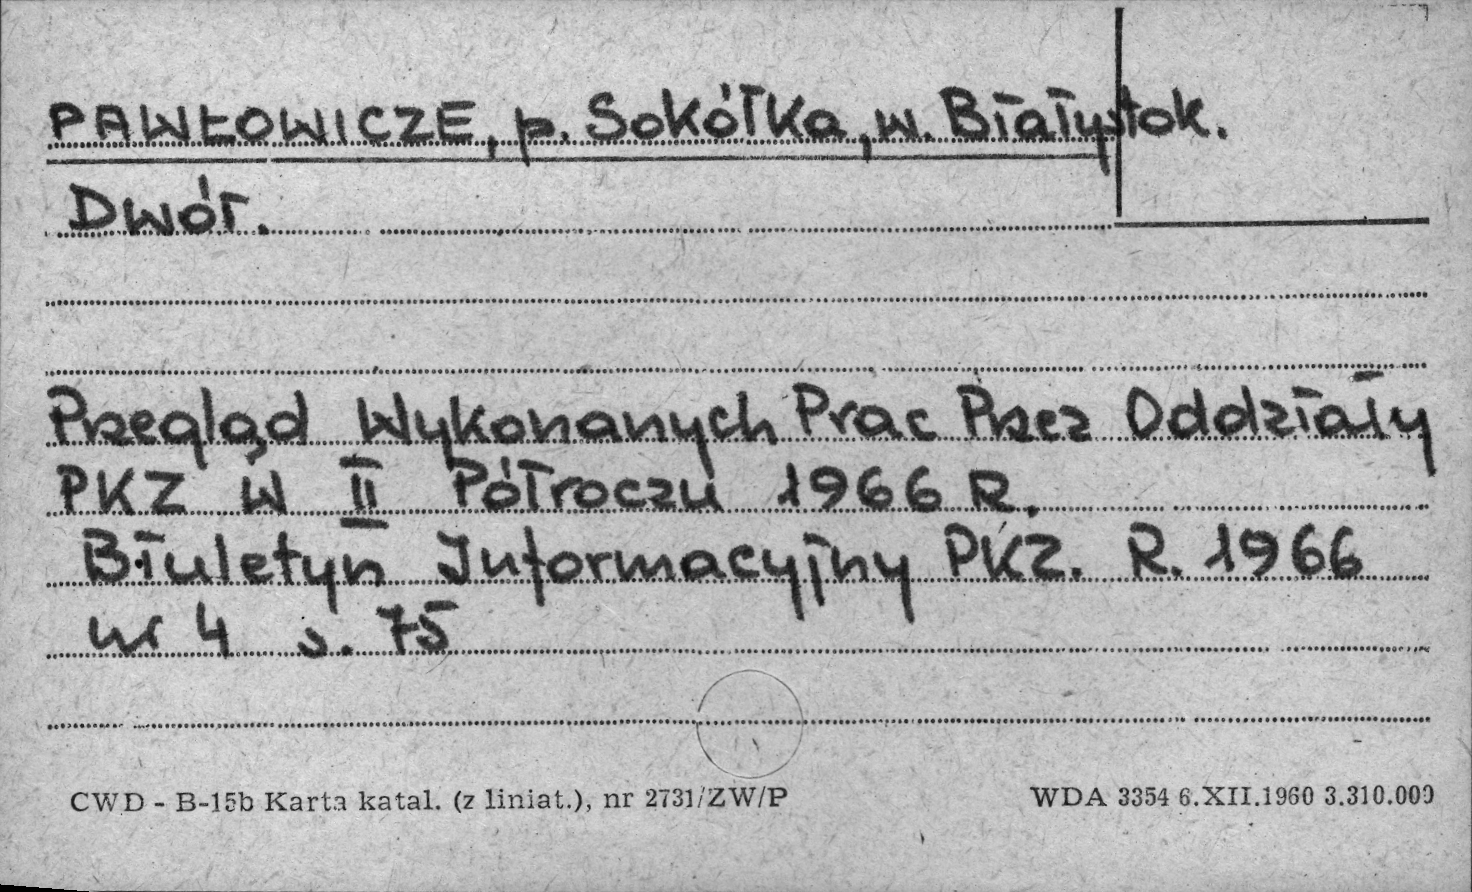 PAWŁOWICZE, p. Sokółka, w. Białystok.
Dwór.
Przegląd Wykonanych Prac Przez Oddziały
PKZ w II Półroczu 1966 R.
Biuletyn Informacyjny PKZ. R. 1966
nr 4 s. 75
CWD - B-15b Karta katal. (z liniat.), nr 2731/ZW/P
WDA 3354 6.XII.1960 3.310.000